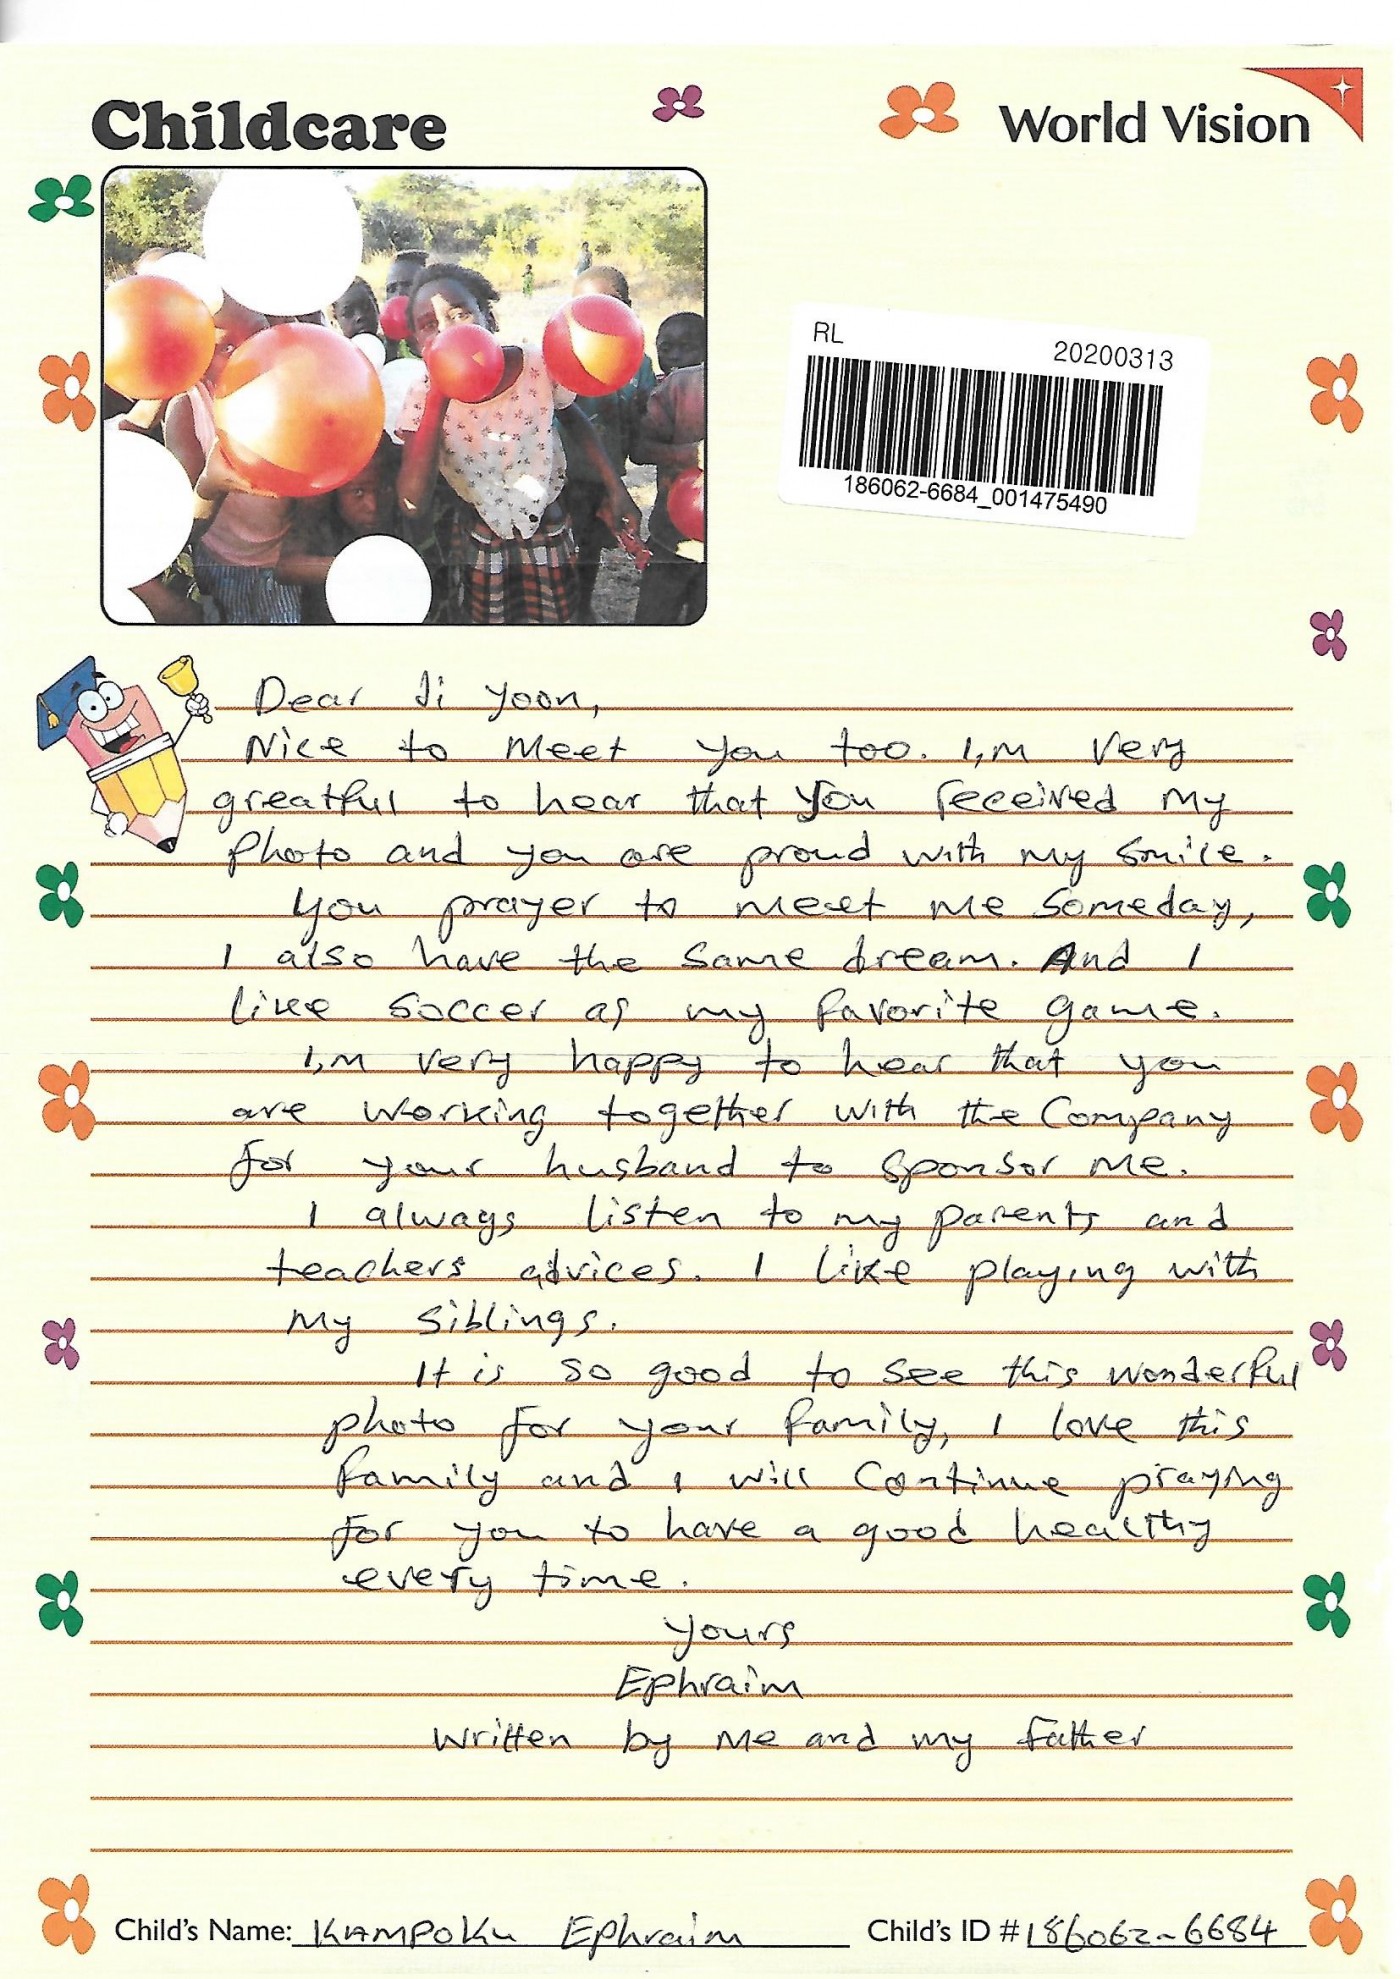 Childcare
World Vision
RL 20200313
186062-6684_001475490
Dear Ji Yoon,
Nice to meet you too. I,m very
greatful to hear that you received my
photo and you are proud with my smile.
You prayer to meet me someday,
I also have the same dream. And I
like soccer as my favorite game.
I,m very happy to hear that you
are working together with the Company
for your husband to sponsor me.
I always listen to my parents and
teachers advices. I like playing with
my siblings.
It is so good to see this wonderful
photo for your family, I love this
family and I will Continue praying
for you to have a good healthy
every time.
yours
Ephraim
Written by me and my father
Child's Name: KAMPOKU Ephraim Child's ID # 186062-6684